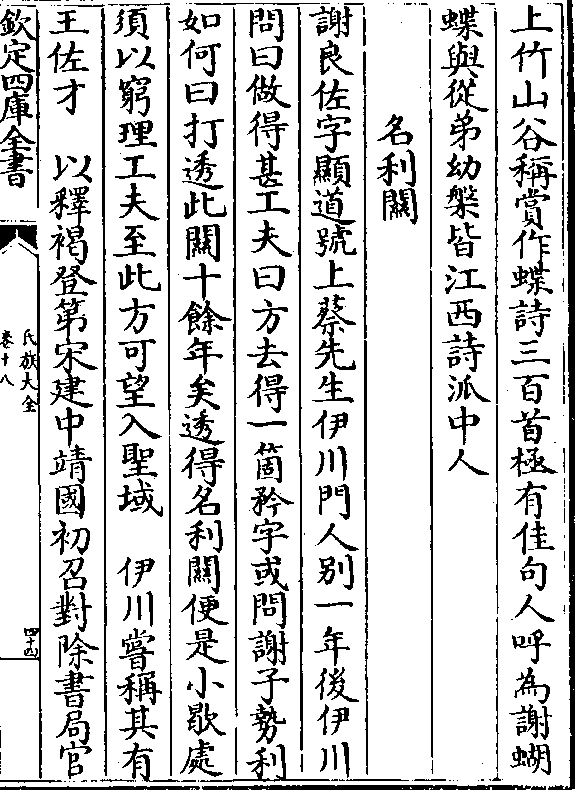 上竹山谷稱賞作蝶詩三百首極有佳句人呼為謝蝴
蝶與從弟幼槃皆江西詩派中人
名利關
謝良佐字顯道號上蔡先生伊川門人别一年後伊川
問曰做得甚工夫曰方去得一箇矜字或問謝子勢利
如何曰打透此關十餘年矣透得名利關便是小歇處
須以窮理工夫至此方可望入聖域　伊川嘗稱其有
王佐才　以釋褐登第宋建中靖國初召對除書局官
欽定四庫全書
氏族大全
卷十八
四十四